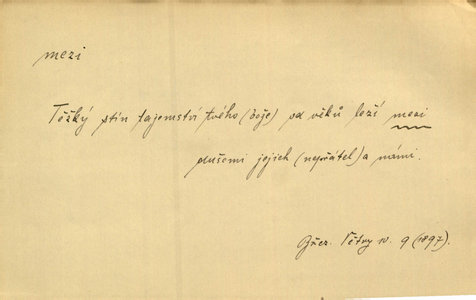 mezi
Těžký stín tajemství tvého (bože) od věků leží mezi
dušemi jejich (nepřátel) a námi.
Břez. Větry 9 (1897).